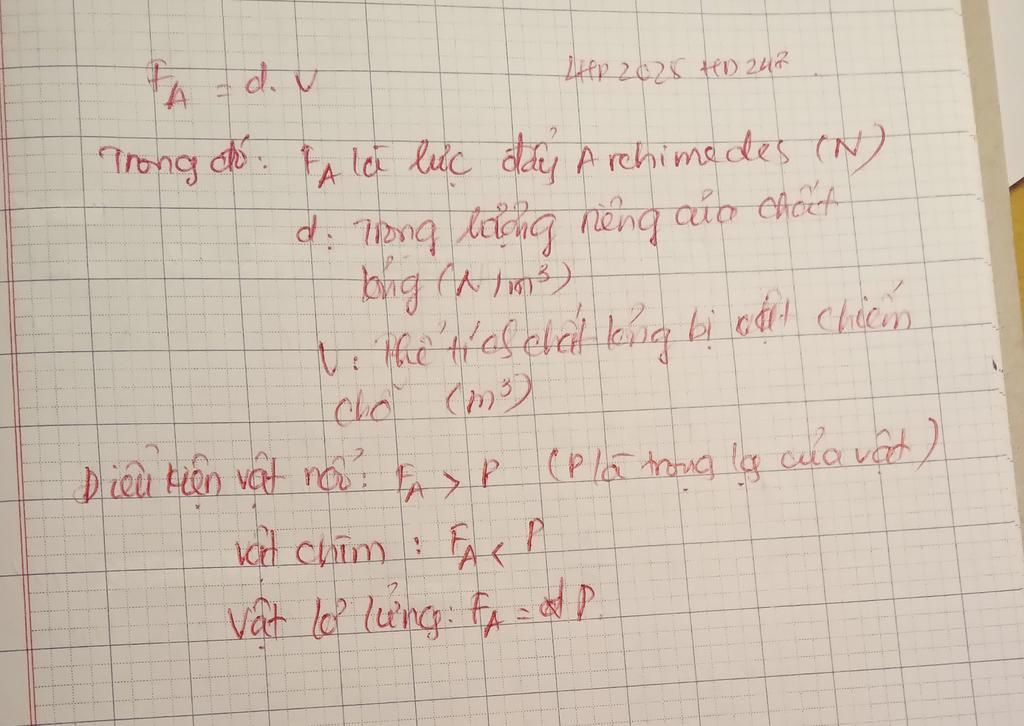 F_A = d. V
Trong đó: F_A là lực đẩy Archimedes (N)
d: Trọng lượng riêng của chất
lỏng (N/m³)
V: Thể tích chất lỏng bị vật chiếm
chỗ (m³)
Điều kiện vật nổi: F_A > P (P là trọng lg của vật)
vật chìm: F_A < P
Vật lơ lửng: F_A = P